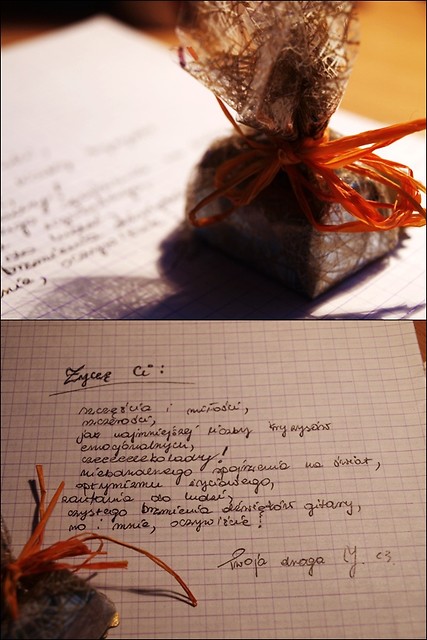 Życzę Ci:
szczęścia i miłości,
szczerości,
jak najmniejszej liczby kryzysów
emocjonalnych,
czeeeeeekolady!
niebanalnego spojrzenia na świat,
optymizmu życiowego,
zaufania do ludzi,
czystego brzmienia dźwięków gitary,
no i mnie, oczywiście!
Twoja droga Y. <3